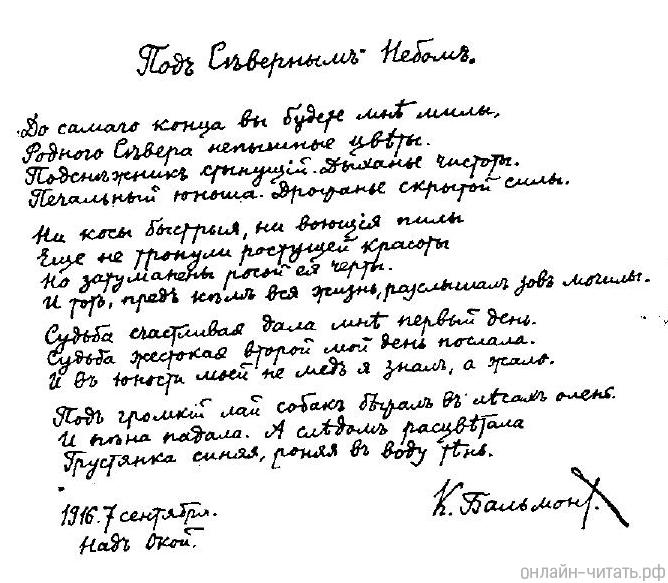 Подъ Сѣвернымъ Небомъ.
До самаго конца вы будете мнѣ милы,
Родного Сѣвера непышные цвѣты.
Подснѣжникъ стынущій. Дыханье чистоты.
Печальный юноша. Дрожанье скрытой силы.
Ни косы быстрыя, ни воющія пилы
Еще не тронули ростущей красоты
Но затуманены росой ея черты.
И тотъ, предъ кѣмъ вся жизнь, разслышалъ зовъ могилы.
Судьба счастливая дала мнѣ первый день.
Судьба жестокая второй мой день послала.
И въ юности моей не медъ я зналъ, а жало.
Подъ громкій лай собакъ бѣжалъ въ лѣсахъ олень.
И пѣна падала. А слѣдомъ расцвѣтала
Грустянка синяя, роняя въ воду тѣнь.
1916. 7 сентября.
Надъ Окой.
К. Бальмонт.
онлайн-читать.рф